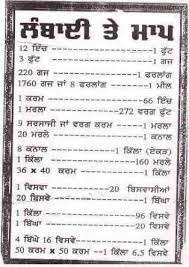 ਲੰਬਾਈ ਤੇ ਮਾਪ
12 ਇੰਚ ---------- 1 ਫੁੱਟ
3 ਫੁੱਟ ---------- 1 ਗਜ
220 ਗਜ ---------- 1 ਫਰਲਾਂਗ
1760 ਗਜ ਜਾਂ 8 ਫਰਲਾਂਗ ---- 1 ਮੀਲ
1 ਕਰਮ ---------- 66 ਇੰਚ
1 ਮਰਲਾ ---------- 272 ਵਰਗ ਫੁੱਟ
9 ਸਰਸਾਹੀ ਜਾਂ ਵਰਗ ਕਰਮ ---- 1 ਮਰਲਾ
20 ਮਰਲੇ ---------- 1 ਕਨਾਲ
8 ਕਨਾਲ ---------- 1 ਕਿੱਲਾ (ਏਕੜ)
1 ਕਿੱਲਾ ---------- 160 ਮਰਲੇ
36 x 40 ਕਰਮ ---------- 1 ਕਿੱਲਾ
1 ਵਿਸਵਾ ---------- 20 ਬਿਸਵਾਸੀਆਂ
20 ਬਿਸਵੇ ---------- 1 ਬਿੱਘਾ
1 ਕਿੱਲਾ ---------- 96 ਵਿਸਵੇ
1 ਬਿੱਘਾ ---------- 20 ਵਿਸਵੇ
4 ਬਿੱਘੇ 16 ਵਿਸਵੇ ---------- 1 ਕਿੱਲਾ
50 ਕਰਮ x 50 ਕਰਮ -- 1 ਕਿੱਲਾ 6.5 ਵਿਸਵੇ